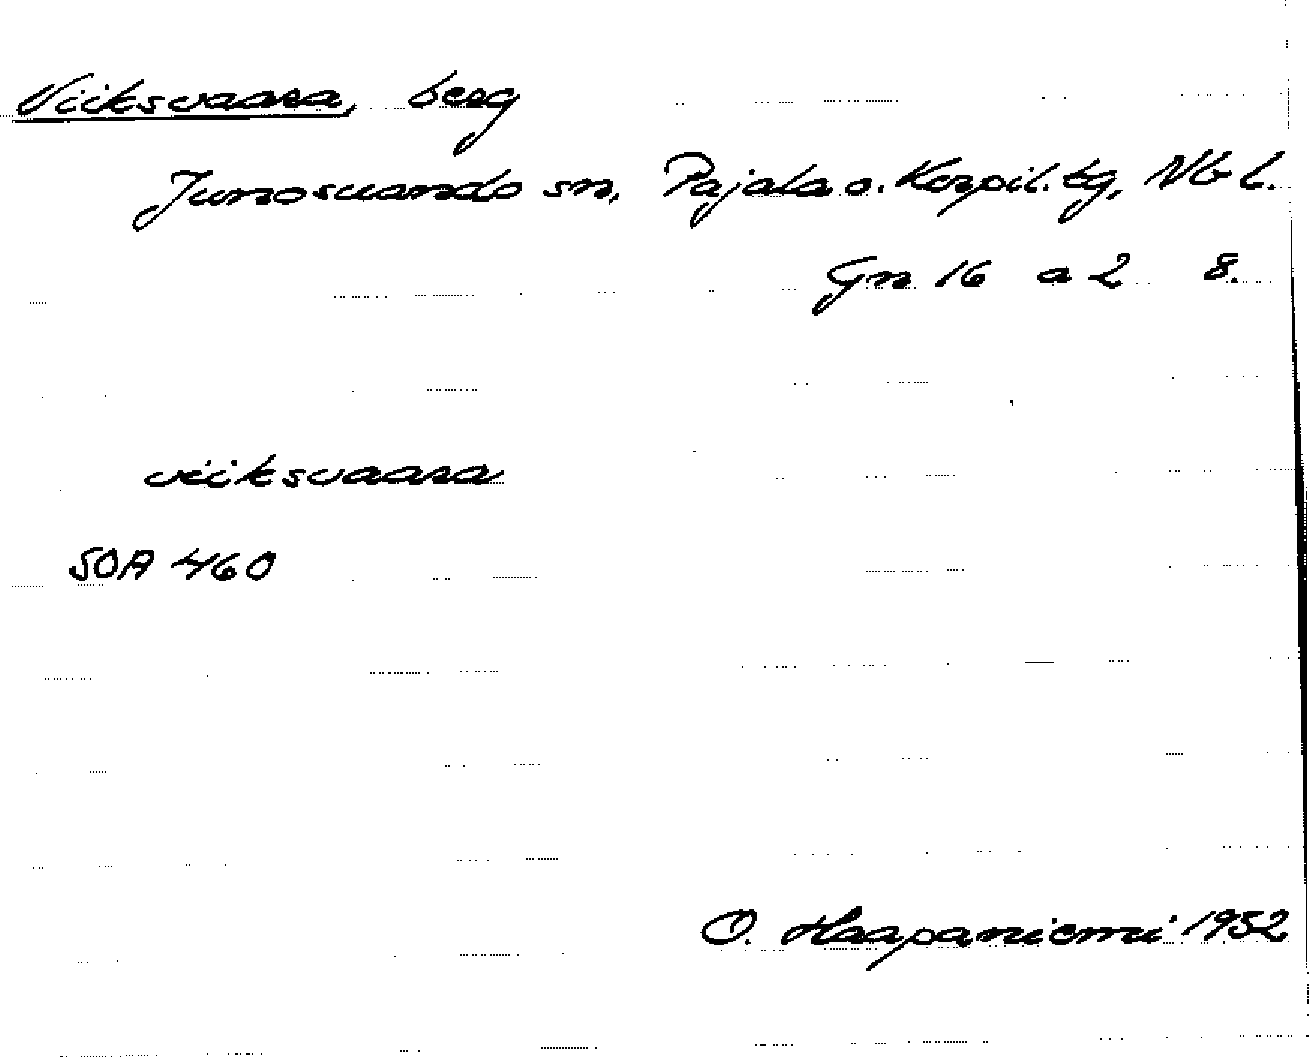 Viiksvaara, berg
Junosuando sn, Pajala o. Korpil. tg, Nb l.
Gn 16 a 2 8.
viiksvaara
SOA 460
O. Haapaniemi 1952